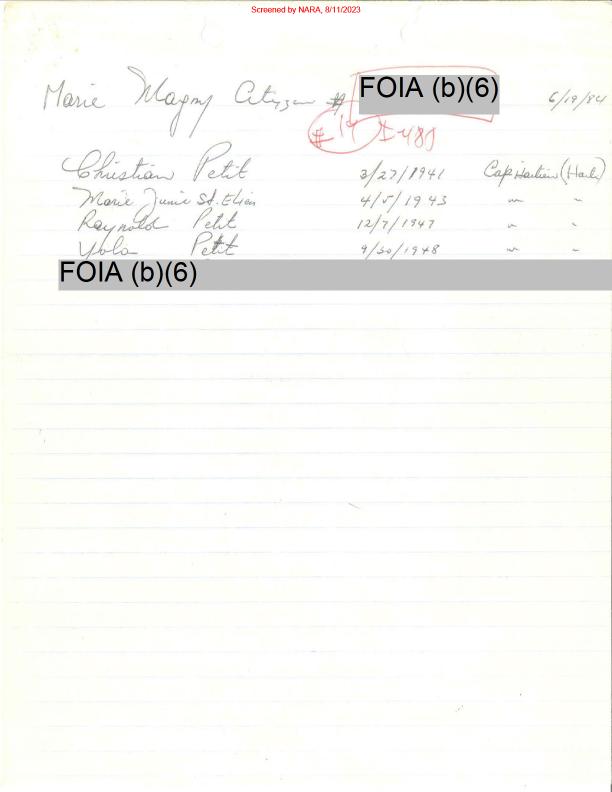 Screened by NARA, 8/11/2023
Marie Magny Citizen # FOIA (b)(6) 6/19/84
# 14 I-480
Christian Petit 3/27/1941 Cap Haitien (Haiti)
Marie Junie St. Elien 4/5/1943 " "
Raynold Petit 12/7/1947 " "
Yola Petit 9/30/1948 " "
FOIA (b)(6)